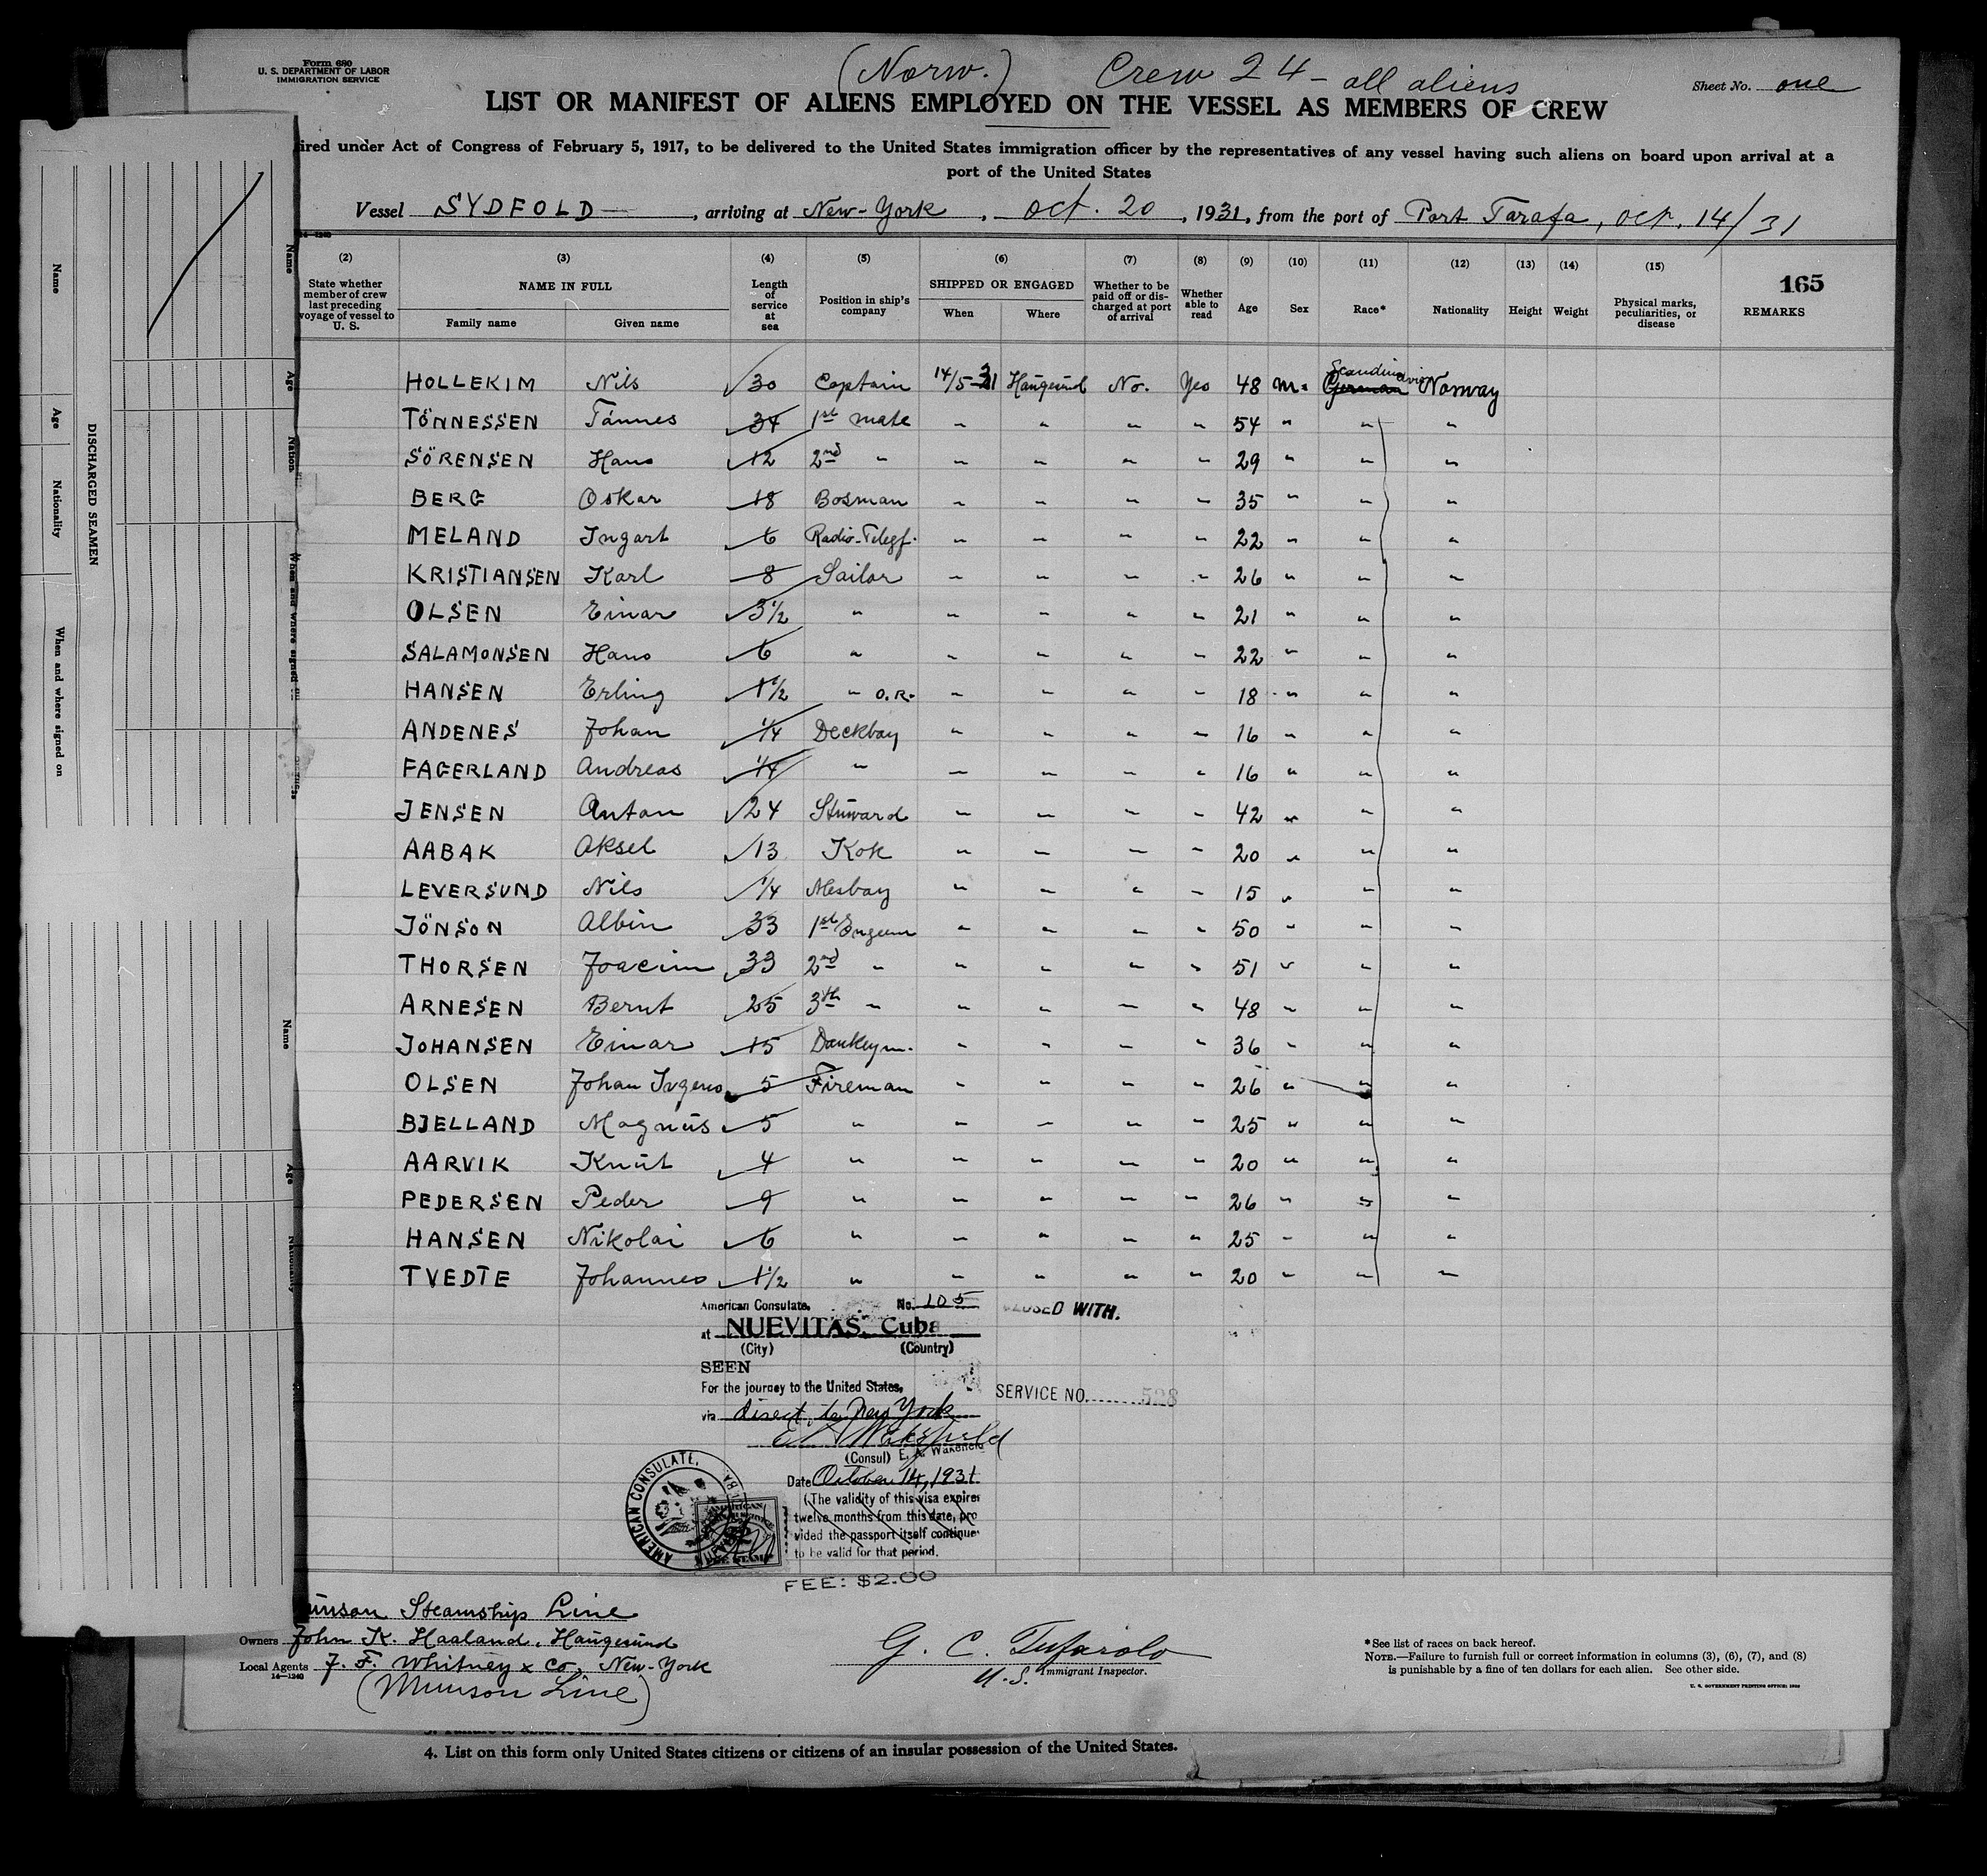 Form 680
U. S. DEPARTMENT OF LABOR
IMMIGRATION SERVICE
(Norw.) Crew 24 - all aliens
Sheet No. one
LIST OR MANIFEST OF ALIENS EMPLOYED ON THE VESSEL AS MEMBERS OF CREW
ired under Act of Congress of February 5, 1917, to be delivered to the United States immigration officer by the representatives of any vessel having such aliens on board upon arrival at a
port of the United States
Vessel SYDFOLD, arriving at New-York, Oct. 20, 1931, from the port of Port Tarafa, Oct. 14/31
(2) (3) (4) (5) (6) (7) (8) (9) (10) (11) (12) (13) (14) (15)
165
State whether member of crew last preceding voyage of vessel to U. S.
NAME IN FULL
Family name Given name
Length of service at sea
Position in ship's company
SHIPPED OR ENGAGED
When Where
Whether to be paid off or discharged at port of arrival
Whether able to read
Age Sex Race* Nationality Height Weight
Physical marks, peculiarities, or disease
REMARKS
Scandinavian
HOLLEKIM Nils 30 Captain 14/5-31 Haugesund No. Yes 48 m. German Norway
TÖNNESSEN Tönnes 34 1st mate " " " " 54 " " "
SÖRENSEN Hans 12 2nd " " " " " 29 " " "
BERG Oskar 18 Bosman " " " " 35 " " "
MELAND Ingart 6 Radio-Telegf. " " " " 22 " " "
KRISTIANSEN Karl 8 Sailor " " " " 26 " " "
OLSEN Einar 3½ " " " " " 21 " " "
SALAMONSEN Hans 6 " " " " " 22 " " "
HANSEN Erling 1½ " O.R. " " " " 18 " " "
ANDENES Johan ¼ Deckboy " " " " 16 " " "
FAGERLAND Andreas ¼ " " " " " 16 " " "
JENSEN Anton 24 Stuward " " " " 42 " " "
AABAK Aksel 13 Kok " " " " 20 " " "
LEVERSUND Nils ¼ Mesboy " " " " 15 " " "
JÖNSON Albin 33 1st " " " " 50 " " "
THORSEN Joacim 33 2nd " " " " " 51 " " "
ARNESEN Bernt 25 3th " " " " " 48 " " "
JOHANSEN Einar 15 Donkeym. " " " " 36 " " "
OLSEN Johan 5 Fireman " " " " 26 " " "
BJELLAND Magnus 5 " " " " " 25 " " "
AARVIK Knut 4 " " " " " 20 " " "
PEDERSEN Peder 9 " " " " " 26 " " "
HANSEN Nikolai 6 " " " " " 25 " " "
TVEDTE Johannes 1½ " " " " " 20 " " "
American Consulate. No. 105
at NUEVITAS, Cuba
(City) (Country)
WITH.
SEEN
For the journey to the United States,
SERVICE NO. 528
via direct to New York
E A Wakefield
(Consul) E. A. Wakefield
Date October 14, 1931
(The validity of this visa expires
twelve months from this date, pro
vided the passport itself continues
to be valid for that period.
AMERICAN CONSULATE,
FEE: $2.00
unson Steamship Line
Owners John K. Haaland, Haugesund
Local Agents J. F. Whitney & Co, New-York
14-1240
(Munson Line)
G. C. Tufarolo
U.S. Immigrant Inspector.
*See list of races on back hereof.
NOTE.—Failure to furnish full or correct information in columns (3), (6), (7), and (8)
is punishable by a fine of ten dollars for each alien. See other side.
U. S. GOVERNMENT PRINTING OFFICE: 1930
4. List on this form only United States citizens or citizens of an insular possession of the United States.
DISCHARGED SEAMEN
Name
Age
Nationality
When and where signed on
Name
Age
Nation
When and where signed on
Name
Age
Nationality